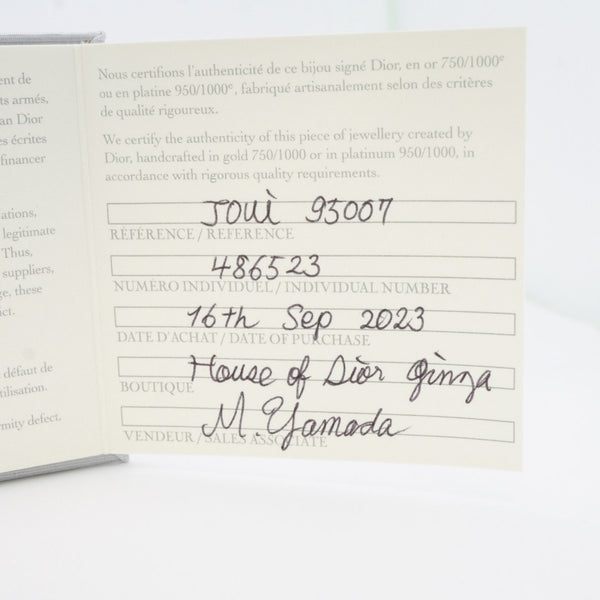 ent de
ts armés,
an Dior
es écrites
financer
ations,
legitimate
Thus,
suppliers,
ge, these
ct.
défaut de
tilisation.
rmity defect.
Nous certifions l'authenticité de ce bijou signé Dior, en or 750/1000e
ou en platine 950/1000e, fabriqué artisanalement selon des critères
de qualité rigoureux.
We certify the authenticity of this piece of jewellery created by
Dior, handcrafted in gold 750/1000 or in platinum 950/1000, in
accordance with rigorous quality requirements.
JOUI 95007
RÉFÉRENCE / REFERENCE
486523
NUMÉRO INDIVIDUEL / INDIVIDUAL NUMBER
16th Sep 2023
DATE D'ACHAT / DATE OF PURCHASE
House of Dior Ginza
BOUTIQUE
M. Yamada
VENDEUR / SALES ASSOCIATE